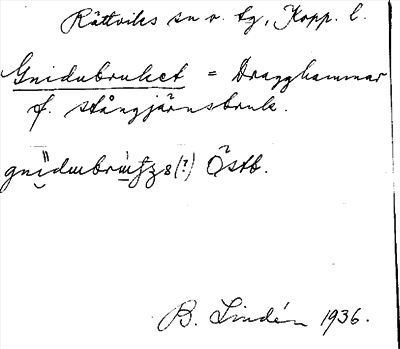 Rättviks sn o. tg, Kopp. l.
Gnidubruket = Dragghammar
f. stångjärnsbruk.
Östb.
B. Lindén 1936.